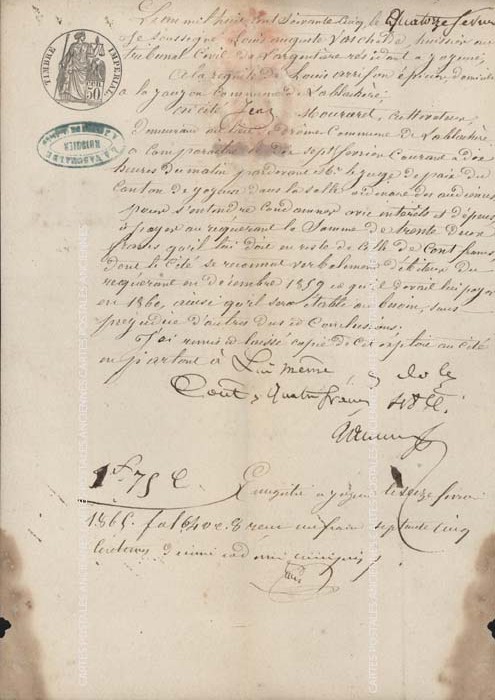 L'an mil huit cent soixante cinq, le Quatorze février
Je soussigné Louis auguste Vaschalde, huissier au
tribunal Civil de Largentière résidant a Joyeuse,
a la requête de Louis
a commune de Lablachère,
ai cité Jean Mourard, Cultivateur,
demeurant au lieu Commune de Lablachère
a Comparaitre le dix sept février Courant a dix
heures du matin pardevant Mr le Juge de paix du
Canton de Joyeuse dans la salle ordinaire des audiences
pour s'entendre Condamner avec intérêts et dépens
a payer au requérant la Somme de trente deux
francs qu'il lui doit en reste de celle de Cent francs
dont le Cité se reconnut verbalement débiteur du
requérant en décembre 1859 et qu'il devait lui payer
en 1860, ainsi qu'il sera établi au besoin, sans
préjudice d'autres dus et Conclusions.
J'ai remis et laissé copie de cet exploit au cité
en parlant à Lui même
Cout, Quatre francs
1f 75 c
Enregistré a Joyeuse le seize février
1865. fo Reçu un franc septante cinq
centimes décime
TIMBRE IMPERIAL
50